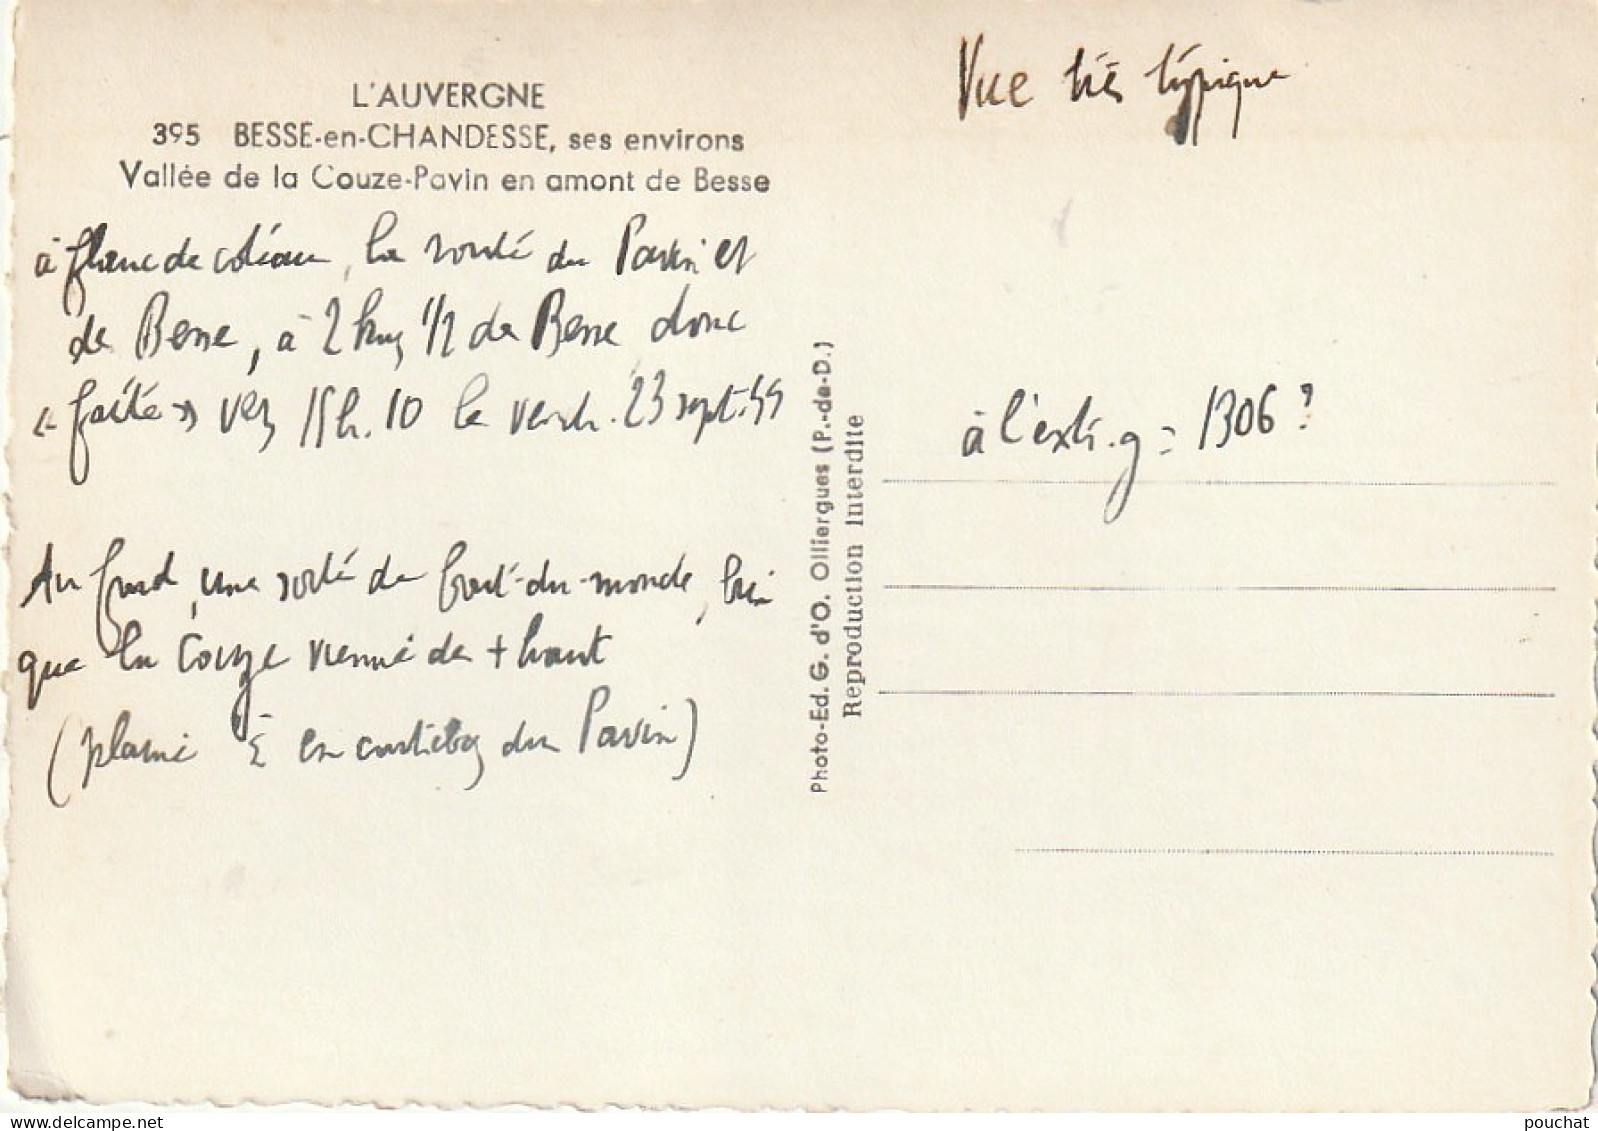 L'AUVERGNE
395 BESSE-en-CHANDESSE, ses environs
Vallée de la Couze-Pavin en amont de Besse
à flanc de coteau, la route du Pavin et
de Besse, à 2 kms 1/2 de Besse donc
« faite » vers 15h.10 le vendr. 23 sept. 55
Au fond, une sorte de bout-du-monde, bien
que la Couze vienne de + haut
(plaine en du Pavin)
Vue très typique
à l'extr. g = 1306 ?
Photo-Ed. G. d'O. Olliergues (P.-de-D.)
Reproduction Interdite
www.delcampe.net
pouchat